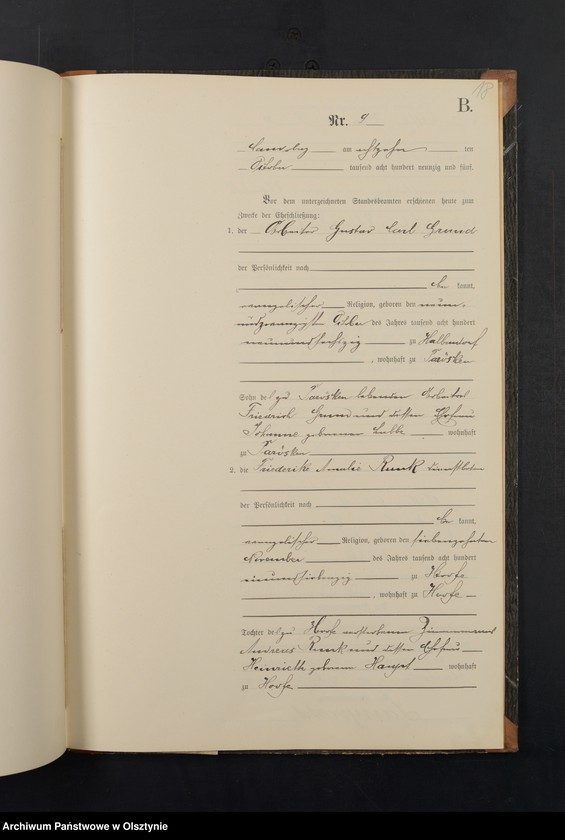 18
B.
Nr. 9
am achtzehn ten
Oktober tausend acht hundert neunzig und fünf,
Vor dem unterzeichneten Standesbeamten erschienen heute zum
Zwecke der Eheschließung:
1. der Arbeiter Gustav Carl Grund
der Persönlichkeit nach
be kannt,
evangelischer Religion, geboren den neun-
undzwanzigsten Oktober des Jahres tausend acht hundert
neunundsechzig zu Halbendorf
, wohnhaft zu
Sohn des zu lebenden Arbeiters
Friedrich Grund und dessen Ehefrau
Johanne geborene wohnhaft
zu
2. die Friederike Amalie Runk Dienstboten
der Persönlichkeit nach
be kannt,
evangelischer Religion, geboren den siebenzehnten
November des Jahres tausend acht hundert
einundsiebenzig zu Hoofe
, wohnhaft zu Hoofe
Tochter des zu Hoofe verstorbenen Zimmermann
Andreas Runk und dessen Ehefrau
Henriette geborene Haupt wohnhaft
zu Hoofe
Archiwum Państwowe w Olsztynie